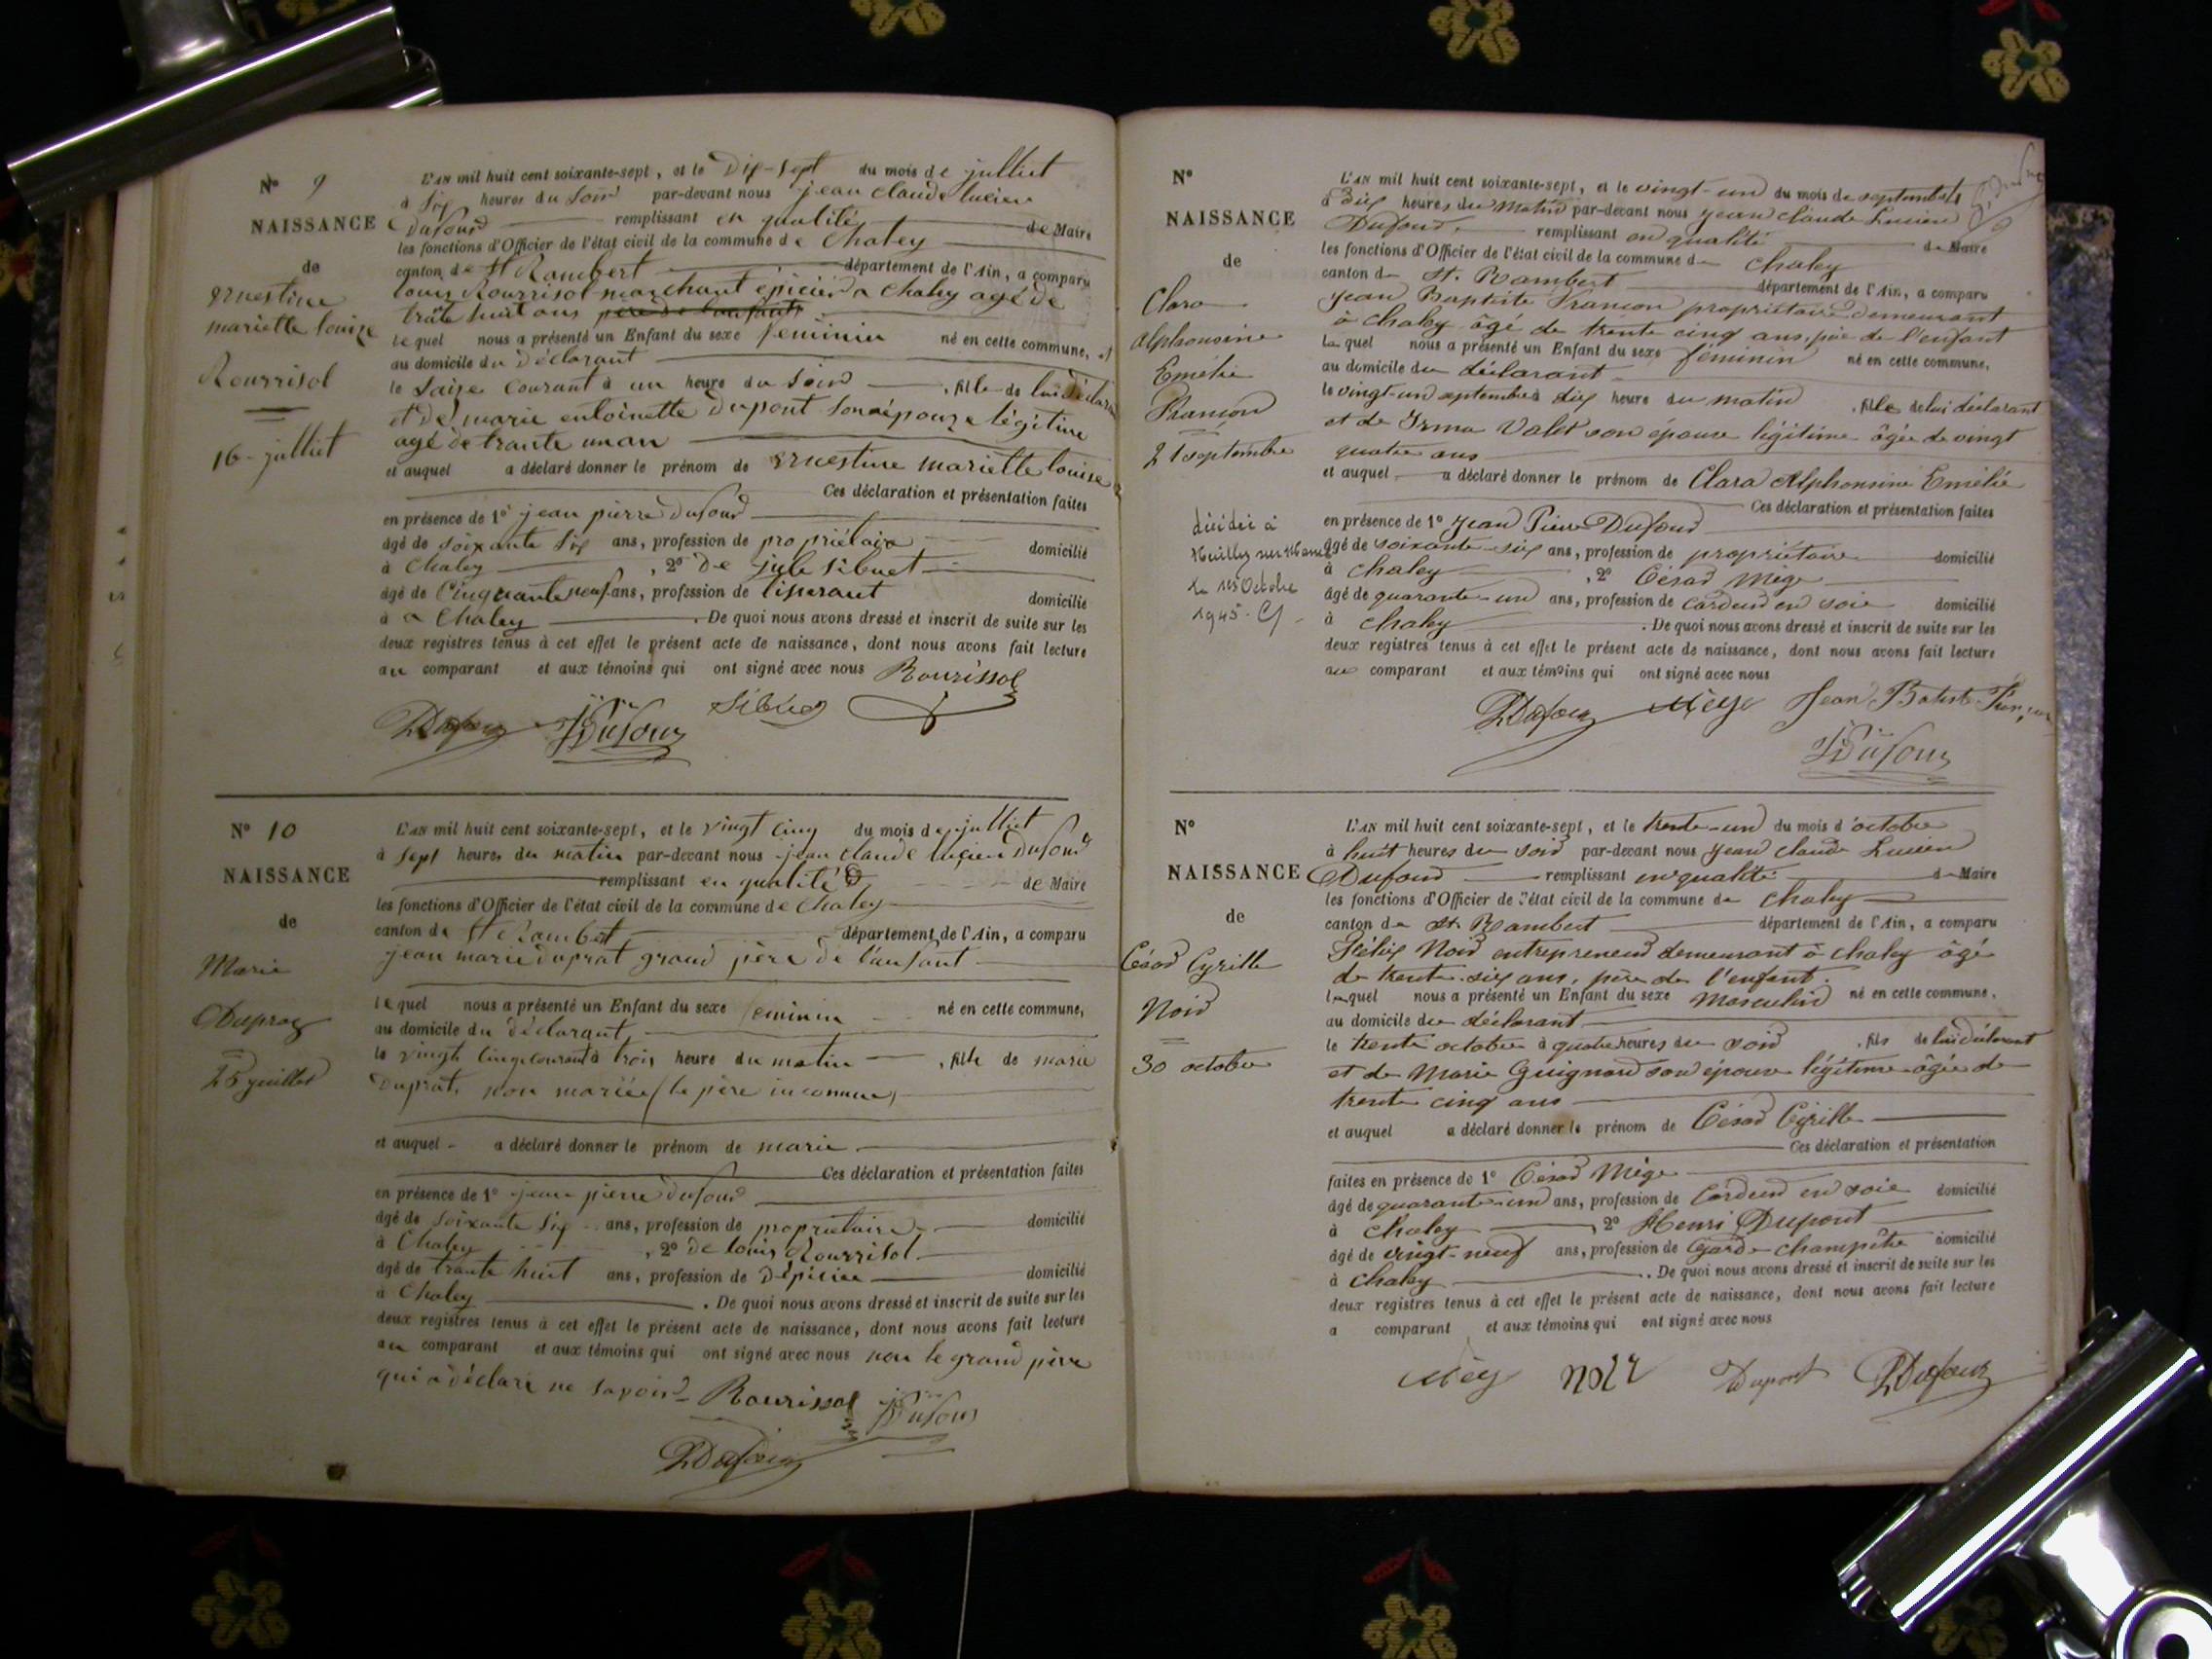 N° 9
NAISSANCE
de
ernestine
mariette louise
Rourrisol
16 - julliet
L'AN mil huit cent soixante-sept, et le Dix-Sept du mois de julliet
à Six heures du Soir par-devant nous jean claude lucien
Dufour remplissant en qualité de Maire
les fonctions d'Officier de l'état civil de la commune de Chaley
canton de St Rambert département de l'Ain, a comparu
louis Rourrisol marchant épicier a Chaley agé de
trate huit ans père de l'enfant
lequel nous a présenté un Enfant du sexe feminin né en cette commune,
au domicile du déclarant
le Saise Courant à un heure du Soir , fille de lui déclarant
et de marie entoinette Dupont Son épouze légitime
agé de trante un an
et auquel a déclaré donner le prénom de ernestine mariette louise
Ces déclaration et présentation faites
en présence de 1° jean pierre Dufour
âgé de soixante Six ans, profession de propriétaire domicilié
à Chaley , 2° De jule Sibuet
âgé de Cinquante neuf ans, profession de tiserant domicilié
à a Chaley . De quoi nous avons dressé et inscrit de suite sur les
deux registres tenus à cet effet le présent acte de naissance, dont nous avons fait lecture
au comparant et aux témoins qui ont signé avec nous Rourissol
Dufour JP Dufour Sibuet
N° 10
NAISSANCE
de
Marie
Dupraz
25 juillet
L'AN mil huit cent soixante-sept, et le vingt cinq du mois de julliet
à Sept heures du matin par-devant nous jean claude lucien Dufour
remplissant en qualité de Maire
les fonctions d'Officier de l'état civil de la commune de Chaley
canton de St Rambert département de l'Ain, a comparu
jean marie duprat grand père de l'anfant
lequel nous a présenté un Enfant du sexe feminin né en cette commune,
au domicile du déclarant
le vingh cinq courant à trois heure du matin , fille de marie
Duprat, non mariée (le père inconnue)
et auquel a déclaré donner le prénom de marie
Ces déclaration et présentation faites
en présence de 1° jean pierre Dufour
âgé de soixante Six ans, profession de propriètaire domicilié
à Chaley , 2° de louis Rourrisol
âgé de trante huit ans, profession de Dépicier domicilié
à Chaley . De quoi nous avons dressé et inscrit de suite sur les
deux registres tenus à cet effet le présent acte de naissance, dont nous avons fait lecture
au comparant et aux témoins qui ont signé avec nous non le grand père
qui à déclaré ne savoir Rourissol JP Dufour
Dufour
N°
NAISSANCE
de
Clara
Alphonsine
Emélie
Françon
21 septembre
décédée à
Neuilly sur Marne
le 1er Octobre
1945
L'AN mil huit cent soixante-sept, et le vingt-un du mois de septembre
à dix heures du matin par-devant nous Jean Claude Lucien
Dufour, remplissant en qualité de Maire
les fonctions d'Officier de l'état civil de la commune de Chaley
canton de St. Rambert département de l'Ain, a comparu
Jean Baptiste Françon propriétaire demeurant
à Chaley âgé de trente cinq ans, père de l'enfant
Lequel nous a présenté un Enfant du sexe féminin né en cette commune,
au domicile du déclarant
le vingt-un septembre à dix heure du matin , fille de lui déclarant
et de Irma Valet son épouse légitime âgée de vingt
quatre ans
et auquel a déclaré donner le prénom de Clara Alphonsine Emélie
Ces déclaration et présentation faites
en présence de 1° Jean Pierre Dufour
âgé de soixante-six ans, profession de propriétaire domicilié
à Chaley , 2° César Mège
âgé de quarante-un ans, profession de Cardeur en soie domicilié
à Chaley . De quoi nous avons dressé et inscrit de suite sur les
deux registres tenus à cet effet le présent acte de naissance, dont nous avons fait lecture
au comparant et aux témoins qui ont signé avec nous
Dufour Mège Jean Batiste Françon
JP Dufour
N°
NAISSANCE
de
César Cyrille
Noir
30 octobre
L'AN mil huit cent soixante-sept, et le trente-un du mois d'octobre
à huit heures du soir par-devant nous Jean Claude Lucien
Dufour remplissant en qualité de Maire
les fonctions d'Officier de l'état civil de la commune de Chaley
canton de St. Rambert département de l'Ain, a comparu
Félix Noir entrepreneur demeurant à Chaley âgé
de trente-six ans, père de l'enfant.
lequel nous a présenté un Enfant du sexe Masculin né en cette commune,
au domicile du déclarant
le trente octobre à quatre heures du soir , fils de lui déclarant
et de Marie Guignard son épouse légitime âgée de
trente cinq ans
et auquel a déclaré donner le prénom de César Cyrille
Ces déclaration et présentation
faites en présence de 1° César Mège
âgé de quarante-un ans, profession de Cardeur en soie domicilié
à Chaley , 2° Henri Dupont
âgé de vingt-neuf ans, profession de Garde-champêtre domicilié
à Chaley . De quoi nous avons dressé et inscrit de suite sur les
deux registres tenus à cet effet le présent acte de naissance, dont nous avons fait lecture
a comparant et aux témoins qui ont signé avec nous
Mège noir Dupont Dufour